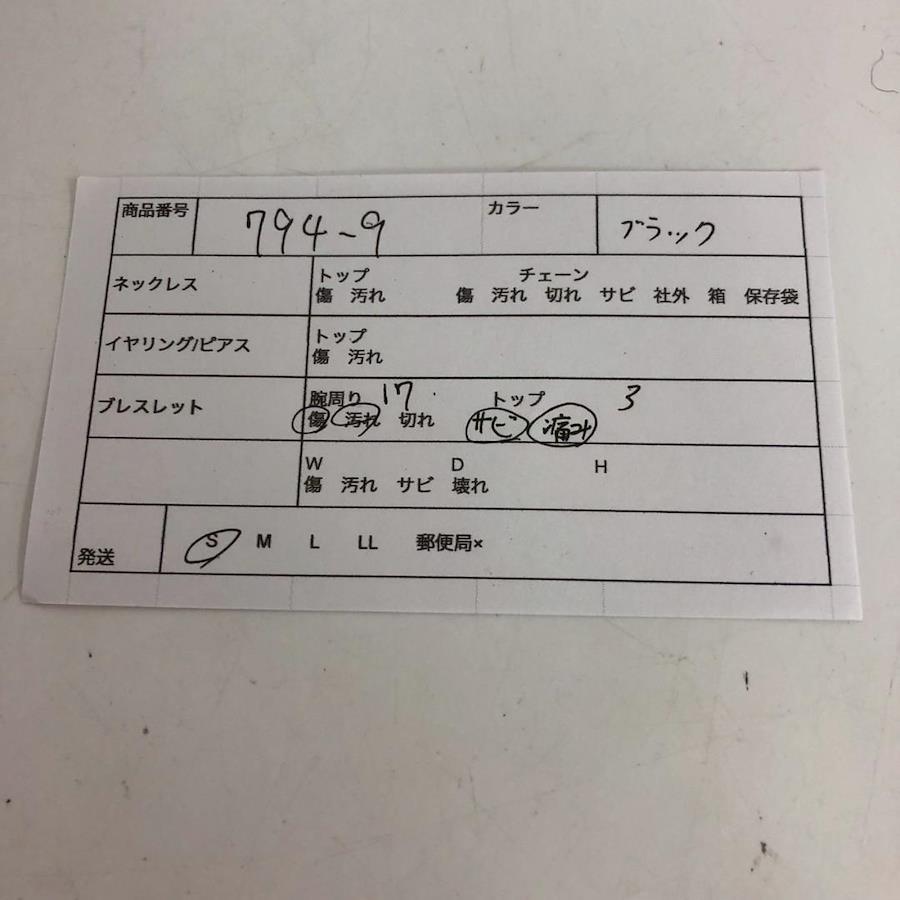 商品番号 794-9 カラー ブラック
ネックレス
トップ チェーン
傷 汚れ 傷 汚れ 切れ サビ 社外 箱 保存袋
イヤリング/ピアス
トップ
傷 汚れ
ブレスレット
腕周り 17 トップ 3
傷 汚れ 切れ サビ 痛み
W D H
傷 汚れ サビ 壊れ
発送 S M L LL 郵便局×